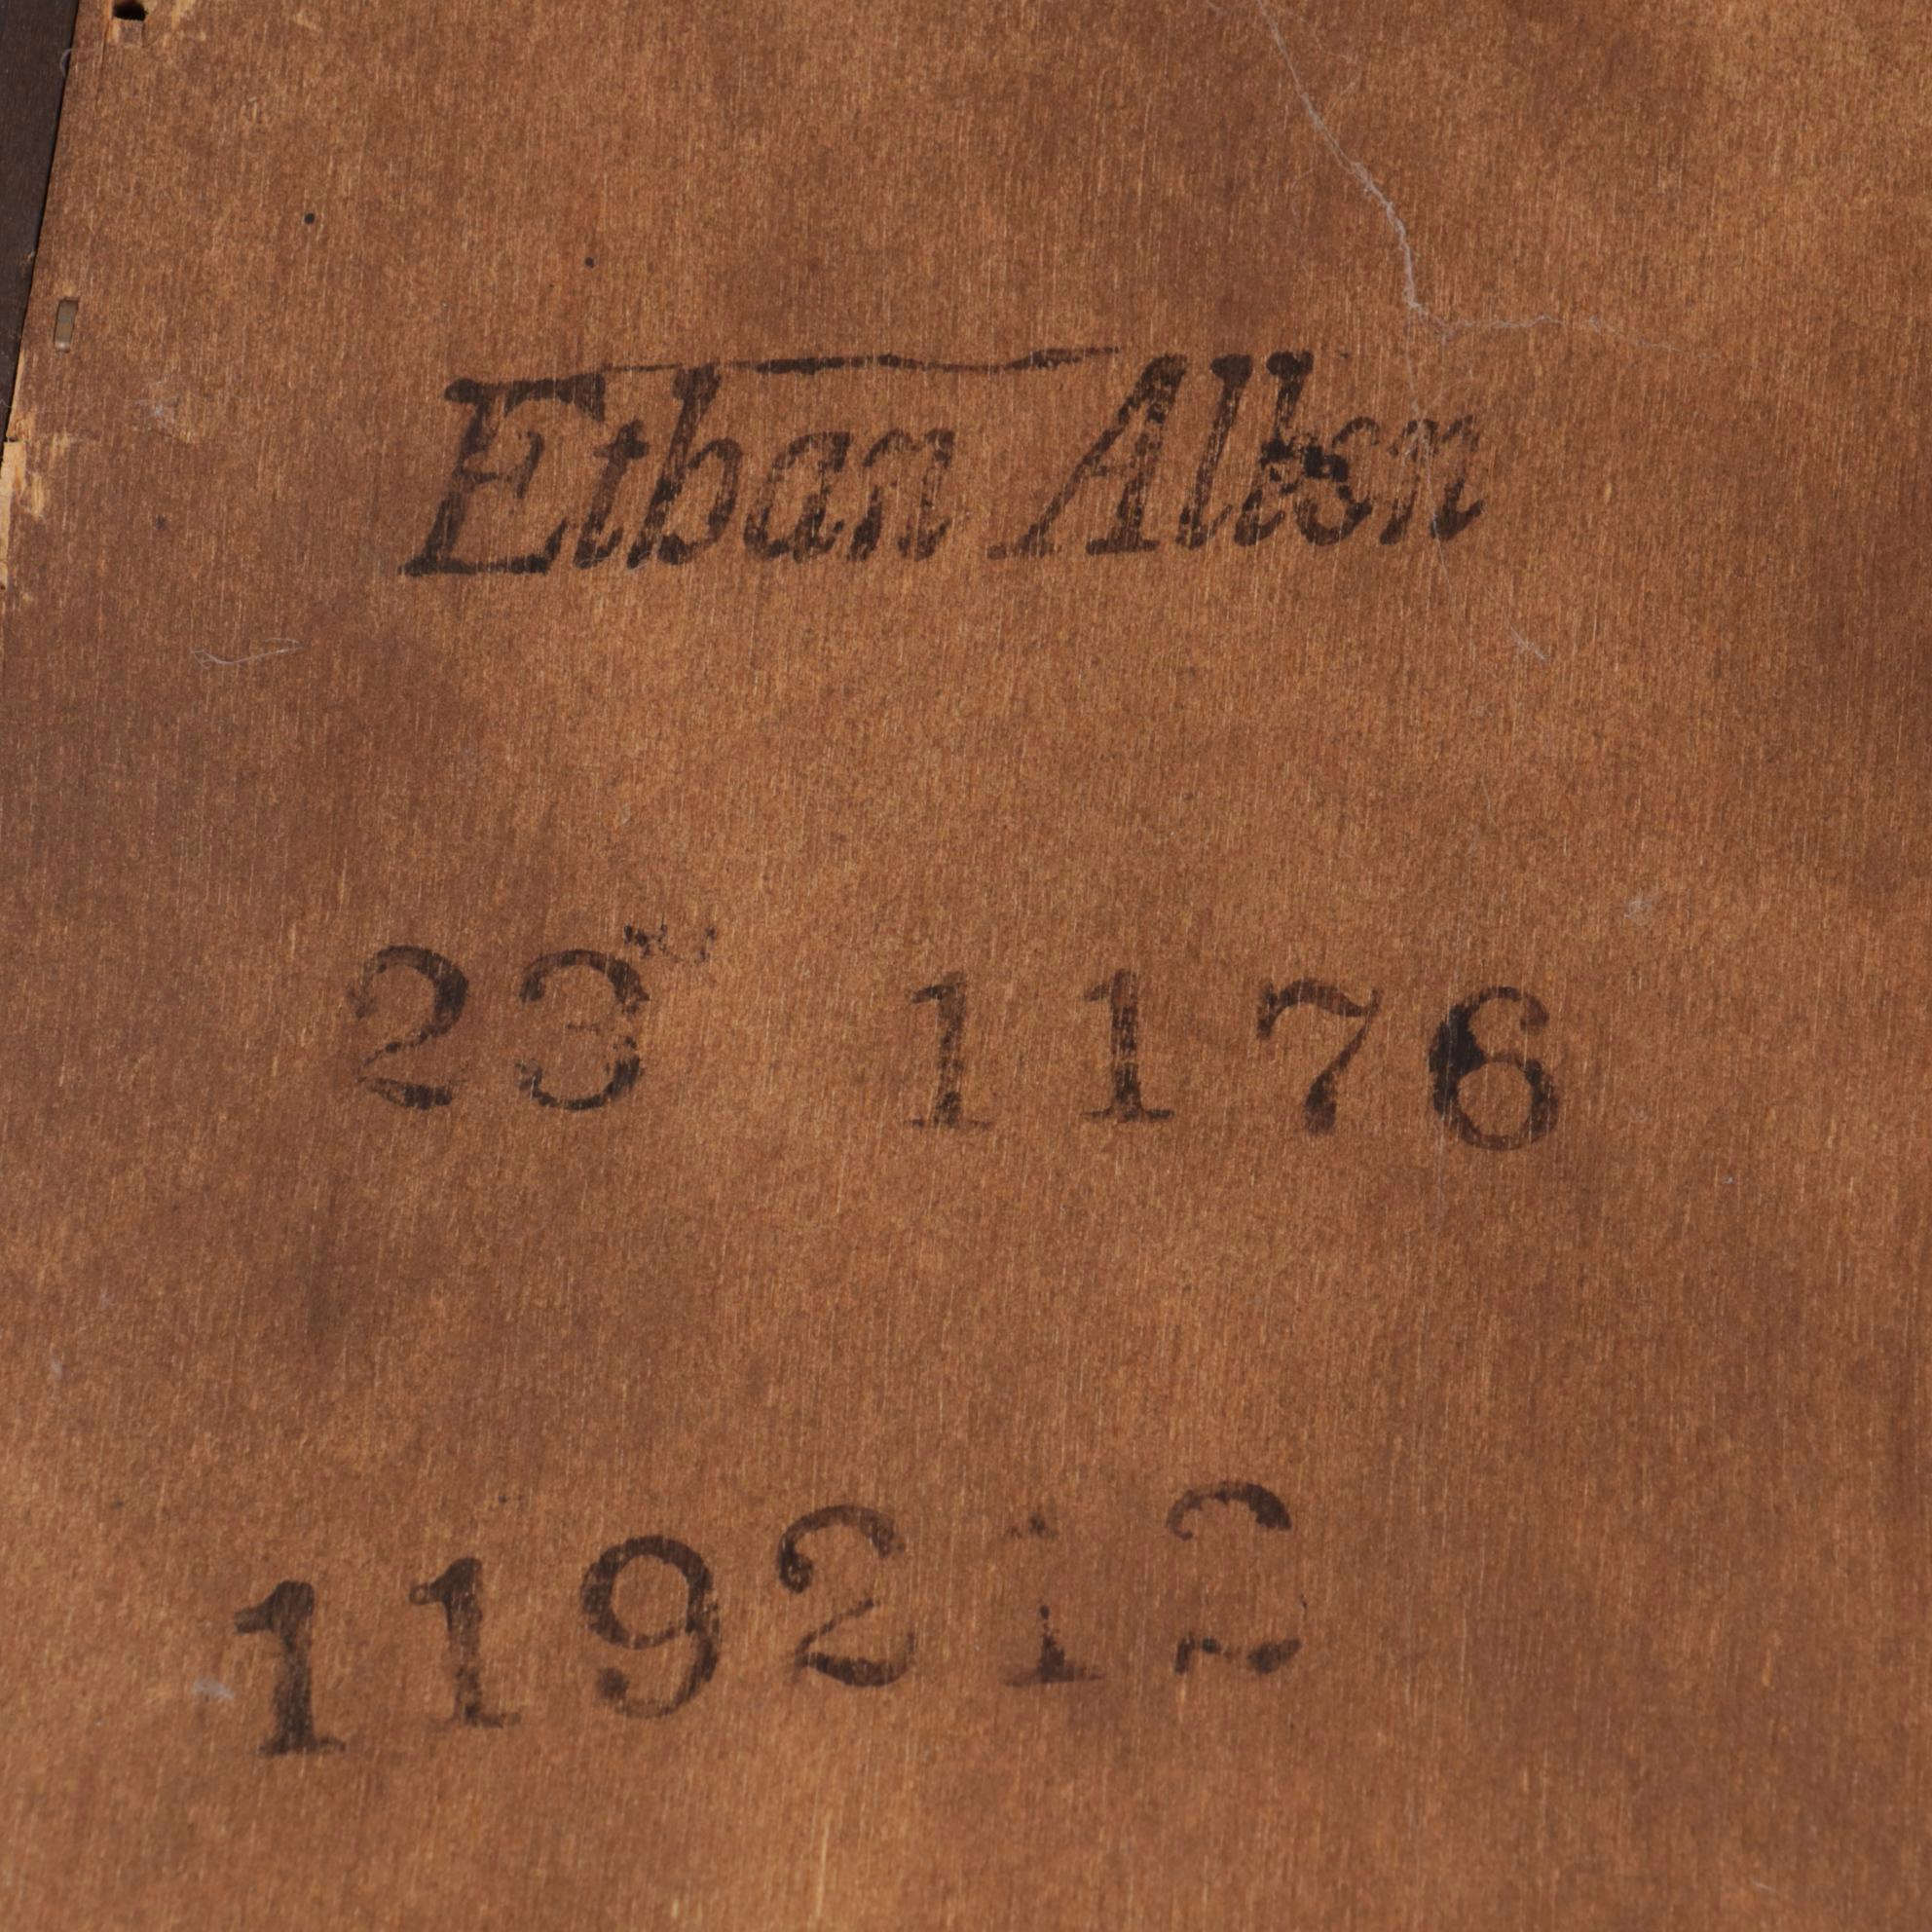 Ethan Allen
23 1176
119212